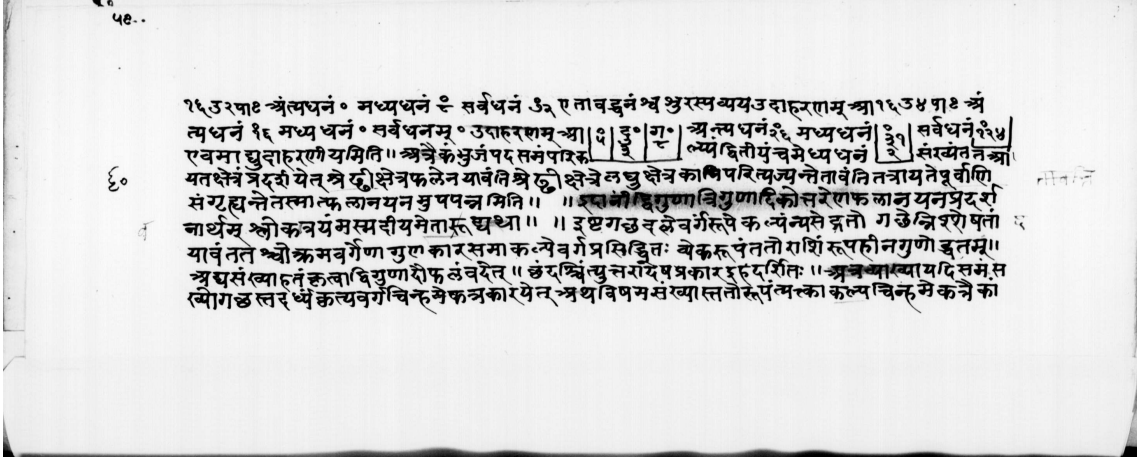 ५९
१६ उ २ प ।८ अंत्यधनं ० मध्यधनं सर्वधनं ३२ एतावद्धनं श्वश्रुरस्य व्यय उदाहरणम् आ १६ उ ४ प ।८ अं
त्यधनं १६ मध्यधनं ० सर्वधनम् ० उदाहरणम् आ अंत्यधनं मध्यधनं सर्वधनं
एवमाद्युदाहरणीयमिति ॥ अत्रैकं भुजं पदसमं परिक ल्प्य द्वितीयं च मध्यधनं संख्यं तत आ
६०
यतक्षेत्रं प्रदर्शयेत् श्रेढीक्षेत्रफलेन यावंति श्रेढीक्षेत्रे लघुक्षेत्रकाणि परित्यज्यन्ते तावंति तत्रायते पूर्वाणि
संगृह्यन्ते तस्मात्फलानयनमुपपन्नमिति ॥ ॥ इदानीं द्विगुणत्रिगुणादिकोत्तरेण फलानयनप्रदर्श
नार्थम् श्लोकत्रयमस्मदीयमेतारूद्यथा ॥ ॥ इष्टगछदले वर्गरूपे कल्प्यं न्यसेद्गतो गछे निःशेषतां
यावंतत श्चोत्क्रमवर्गेणा गुणकारसमाकल्पे वर्गप्रसिद्धितः व्येकरूपं ततो राशिं रूपहीनगुणोद्धृतम् ॥
आद्यसंख्याहतं कृत्वा द्विगुणादौ फलं वदेत् ॥ छंदश्चित्युत्तरादेष प्रकार इह दर्शितः ॥ अत्र व्याख्या यदि समस
ख्योगछस्तदर्ध्यं कृत्य वर्गचिन्हमेकत्र कारयेत् अथ विषमसंख्यास्ततो रूपं त्यत्का कल्पचिन्हमेकत्रैका